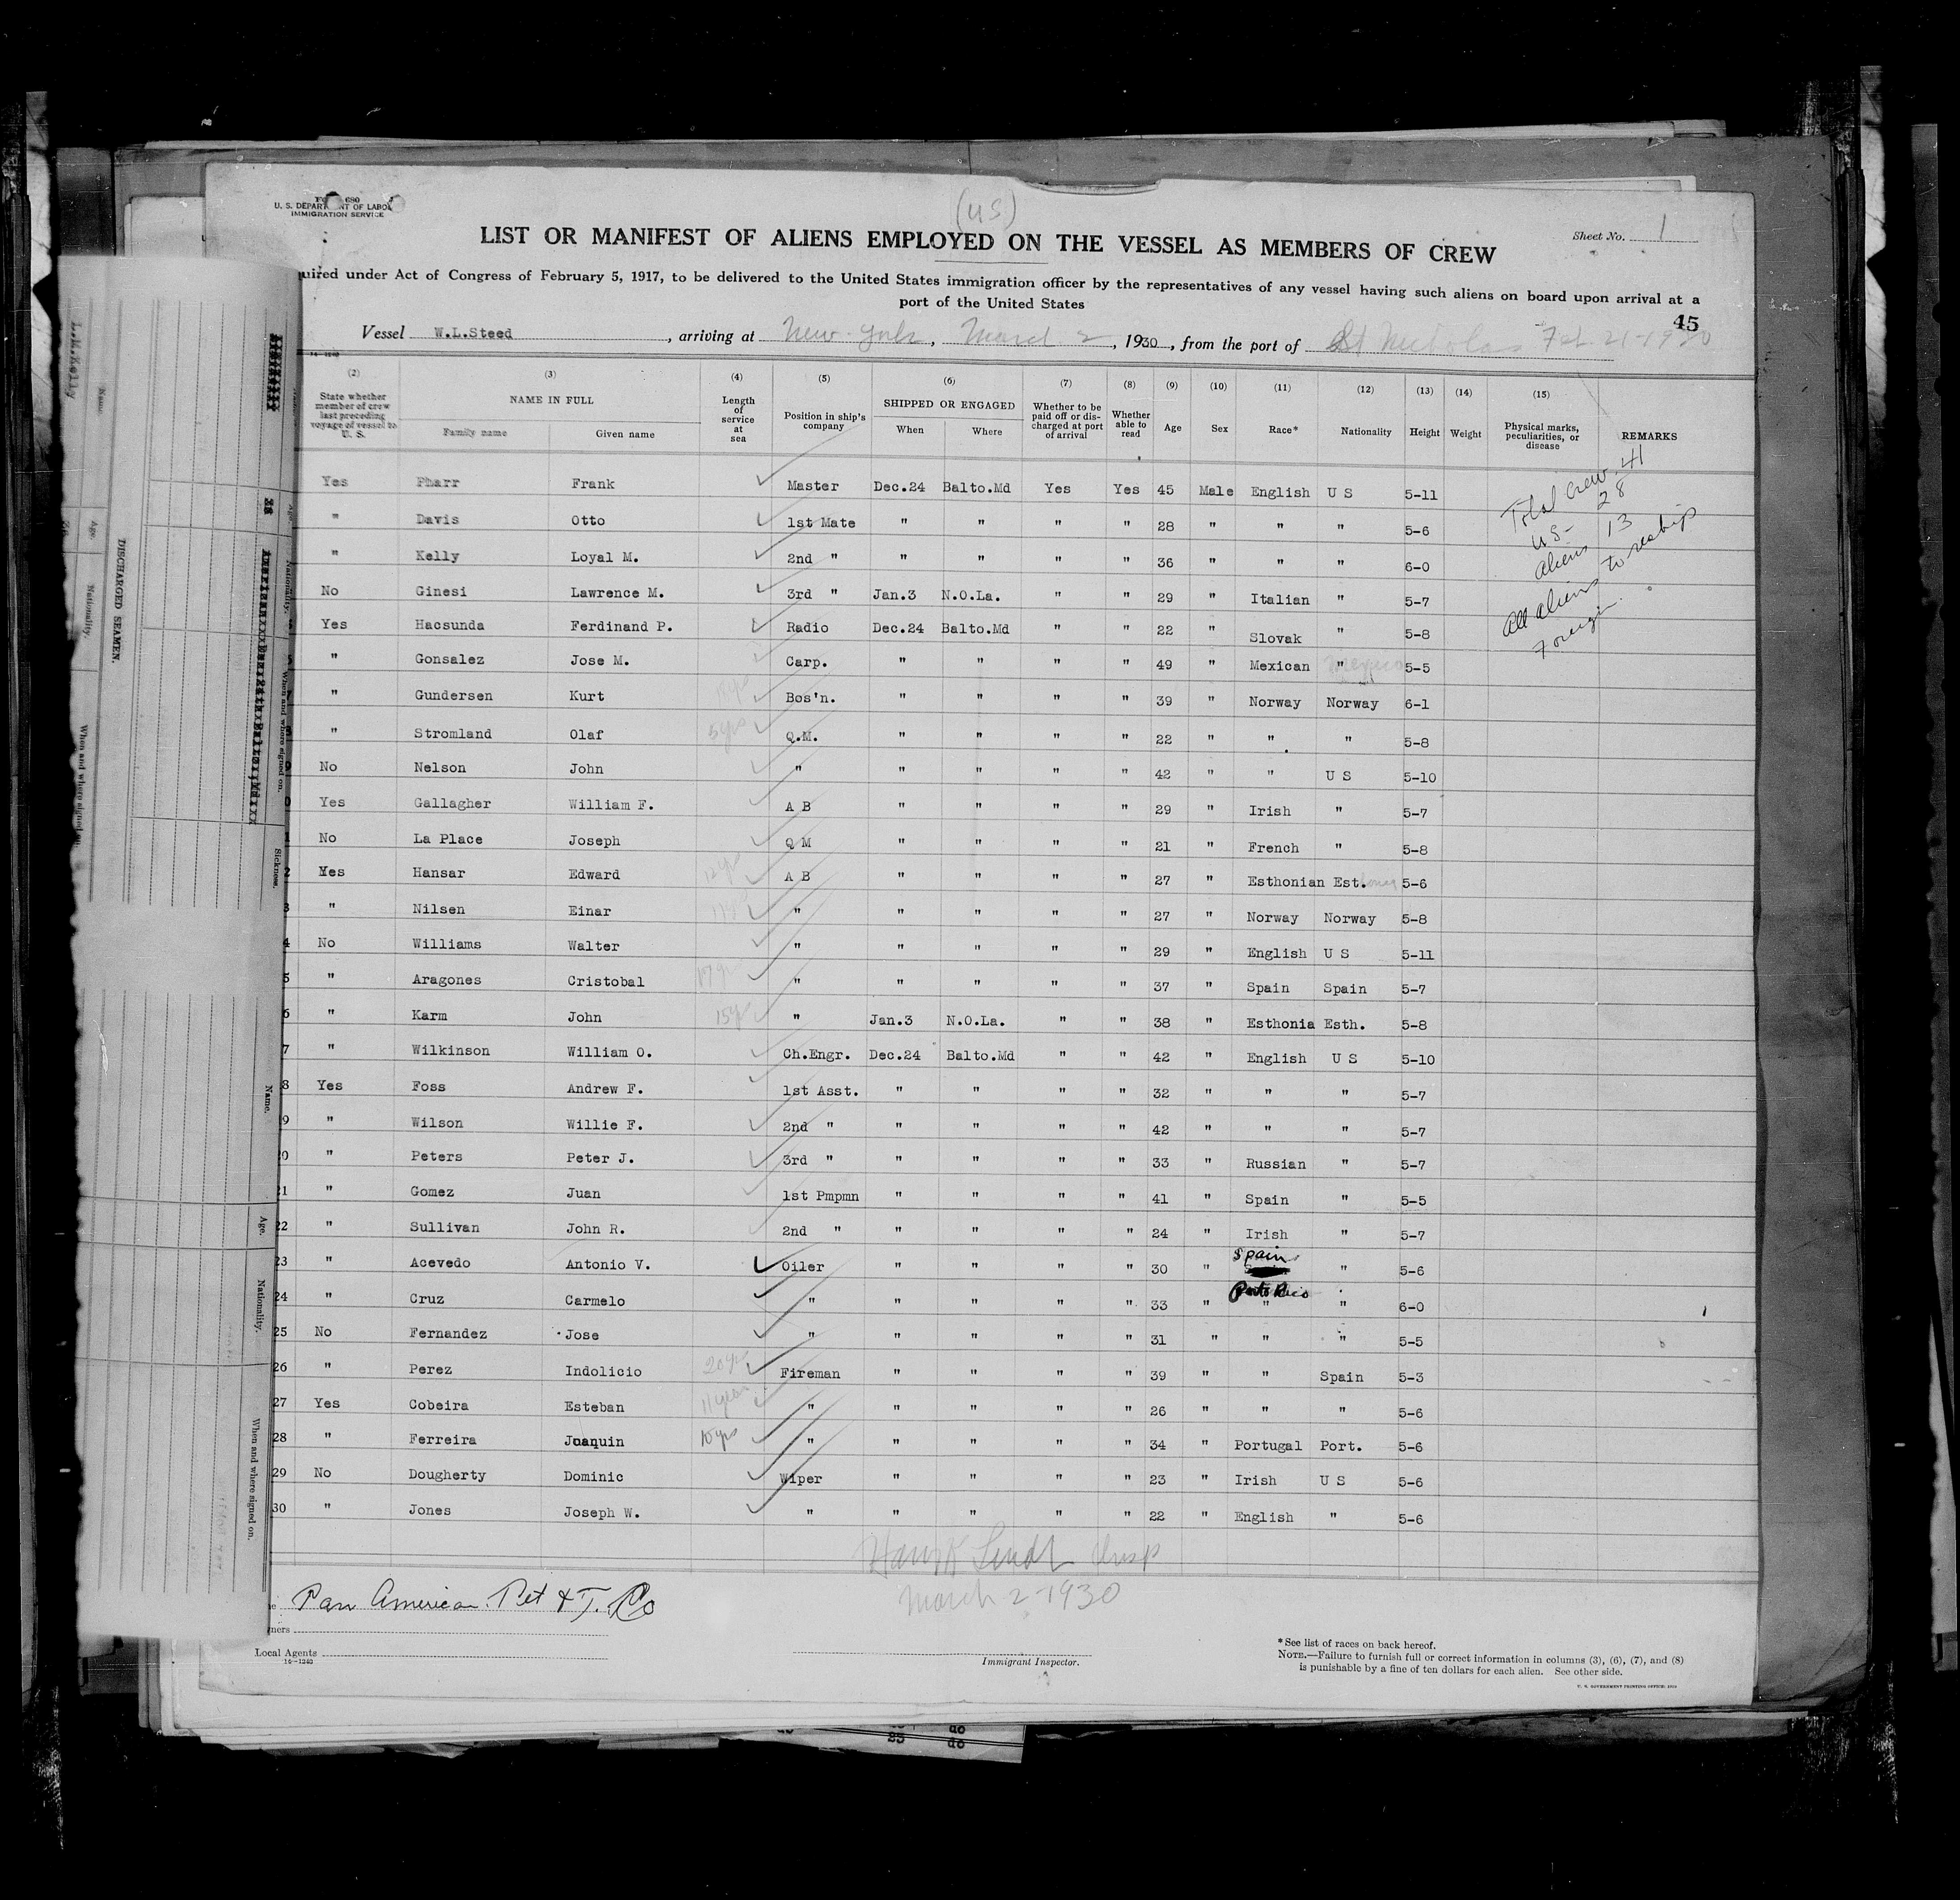 (US)
U. S. DEPARTMENT OF LABOR
IMMIGRATION SERVICE
Sheet No. 1
LIST OR MANIFEST OF ALIENS EMPLOYED ON THE VESSEL AS MEMBERS OF CREW
uired under Act of Congress of February 5, 1917, to be delivered to the United States immigration officer by the representatives of any vessel having such aliens on board upon arrival at a
port of the United States
45
Vessel W.L.Steed, arriving at New York, March 2, 1930, from the port of St Nicholas Feb. 21-1930
(2) (3) (4) (5) (6) (7) (8) (9) (10) (11) (12) (13) (14) (15)
State whether member of crew last preceding voyage of vessel to U. S. NAME IN FULL Family name Given name Length of service at sea Position in ship's company SHIPPED OR ENGAGED When Where Whether to be paid off or discharged at port of arrival Whether able to read Age Sex Race* Nationality Height Weight Physical marks, peculiarities, or disease REMARKS
Yes Pharr Frank Master Dec.24 Balto.Md Yes Yes 45 Male English U S 5-11
" Davis Otto 1st Mate " " " " 28 " " " 5-6
" Kelly Loyal M. 2nd " " " " " 36 " " " 6-0
No Ginesi Lawrence M. 3rd " Jan.3 N.O.La. " " 29 " Italian " 5-7
Yes Hacsunda Ferdinand P. Radio Dec.24 Balto.Md " " 22 " Slovak " 5-8
" Gonsalez Jose M. Carp. " " " " 49 " Mexican " Mexico 5-5
" Gundersen Kurt Bos'n. " " " " 39 " Norway Norway 6-1
" Stromland Olaf 5yrs Q.M. " " " " 22 " " " 5-8
No Nelson John " " " " " 42 " " U S 5-10
Yes Gallagher William F. A B " " " " 29 " Irish " 5-7
No La Place Joseph Q M " " " " 21 " French " 5-8
2 Yes Hansar Edward A B " " " " 27 " Esthonian Est. 5-6
3 " Nilsen Einar " " " " " 27 " Norway Norway 5-8
4 No Williams Walter " " " " " 29 " English U S 5-11
5 " Aragones Cristobal " " " " " 37 " Spain Spain 5-7
6 " Karm John 15y " Jan.3 N.O.La. " " 38 " Esthonia Esth. 5-8
7 " Wilkinson William O. Ch.Engr. Dec.24 Balto.Md " " 42 " English U S 5-10
8 Yes Foss Andrew F. 1st Asst. " " " " 32 " " " 5-7
9 " Wilson Willie F. 2nd " " " " " 42 " " " 5-7
0 " Peters Peter J. 3rd " " " " " 33 " Russian " 5-7
21 " Gomez Juan 1st Pmpmn " " " " 41 " Spain " 5-5
22 " Sullivan John R. 2nd " " " " " 24 " Irish " 5-7
23 " Acevedo Antonio V. Oiler " " " " 30 " Spain " 5-6
24 " Cruz Carmelo " " " " " 33 " Porto Rico " " 6-0
25 No Fernandez Jose " " " " " 31 " " " 5-5
26 " Perez Indolicio 20yr Fireman " " " " 39 " " Spain 5-3
27 Yes Cobeira Esteban 11 year " " " " " 26 " " " 5-6
28 " Ferreira Joaquin 10yrs " " " " " 34 " Portugal Port. 5-6
29 No Dougherty Dominic Wiper " " " " 23 " Irish U S 5-6
30 " Jones Joseph W. " " " " " 22 " English " 5-6
Total Crew. 41
US- 28
Aliens 13
All aliens to reship
Foreign.
March 2-1930
Pan American Pet & T. Co
ners
Local Agents
14-1240
Immigrant Inspector.
*See list of races on back hereof.
NOTE.—Failure to furnish full or correct information in columns (3), (6), (7), and (8)
is punishable by a fine of ten dollars for each alien. See other side.
L.M.Kelly
Name.
Age.
Nationality.
When and where signed on.
DISCHARGED SEAMEN.
Age.
Nationality.
When and where signed on.
Sickness.
Name.
Age.
Nationality.
When and where signed on.